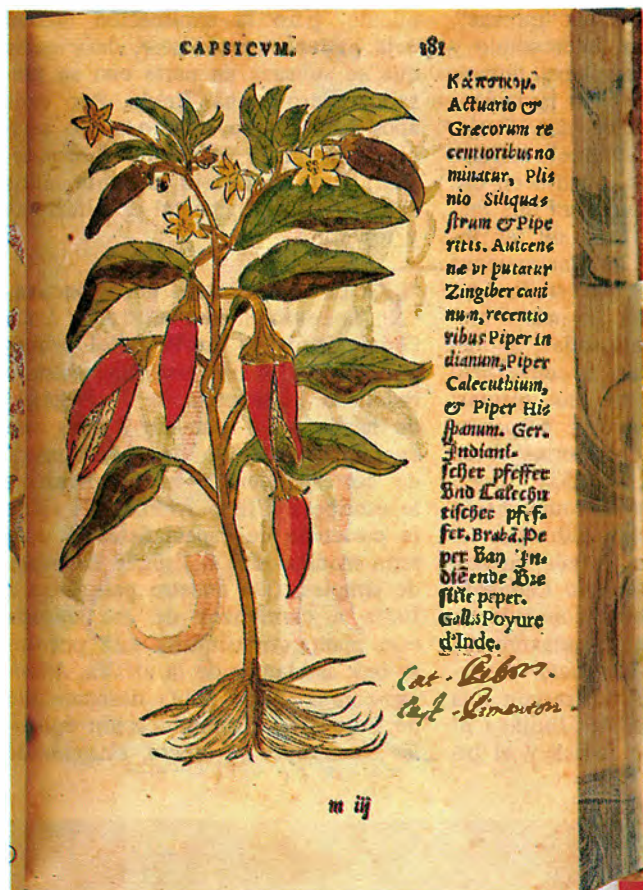 CAPSICVM. 181
Κάπσικομ.
Actuario &
Græcorum re
centioribus no
minatur, Plis
nio Siliquas
strum & Pipe
ritis. Auicens
næ vt putatur
Zingiber cani
num, recentio
ribus Piper In
dianum, Piper
Calecuthium,
& Piper His
spanum. Ger.
Indiani-
scher pfeffer
Vnd Calechu
tischer pfef-
fer. Brabã. Pe
per Van In-
diẽ ende Bre
silie peper.
Gallis Poyure
d'Inde.
Cat. Pebres.
Cast. Pimenton.
m iij